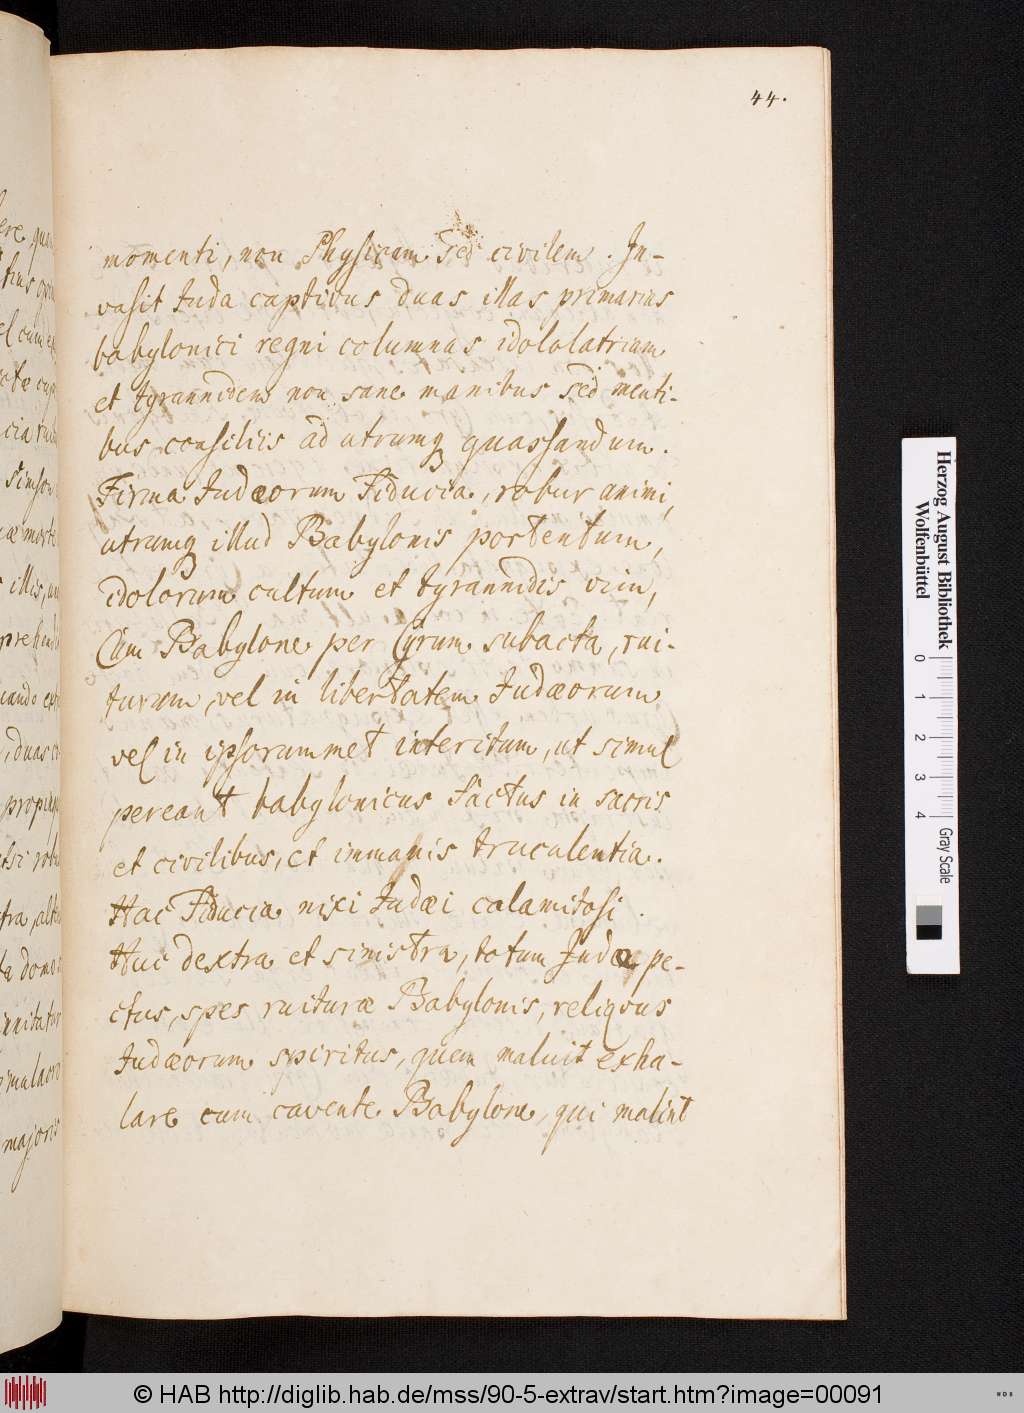 44.
momenti, non Physicam sed civilem. In-
vasit Juda captivus duas illas primarias
babylonici regni columnas idololatriam
et tyrannidem non sane manibus sed menti-
bus consiliis ad utrumq quassandum.
Firma Judæorum Fiducia, robur animi,
utrumq illud Babylonis portentum,
idolorum cultum et tyrannidis vim,
Cum Babylone per Cyrum subacta, rui-
turum, vel in libertatem Judæorum
vel in ipsorummet interitum, ut simul
pereant babylonicus Fastus in sacris
et civilibus, et immanis truculentia.
Hac Fiducia nixi Judæi calamitosi.
Huc dextra et sinistra, totum Judæ pe-
ctus, spes ruituræ Babylonis, reliqvus
Judæorum spiritus, quem maluit exha-
lare cum cavente Babylone, qui malint
ere
tius
el cum
cia
Simson
morte
illis,
, duas
tra,
domo
majoris
Herzog August Bibliothek
Wolfenbüttel
0 1 2 3 4
Gray Scale
© HAB http://diglib.hab.de/mss/90-5-extrav/start.htm?image=00091